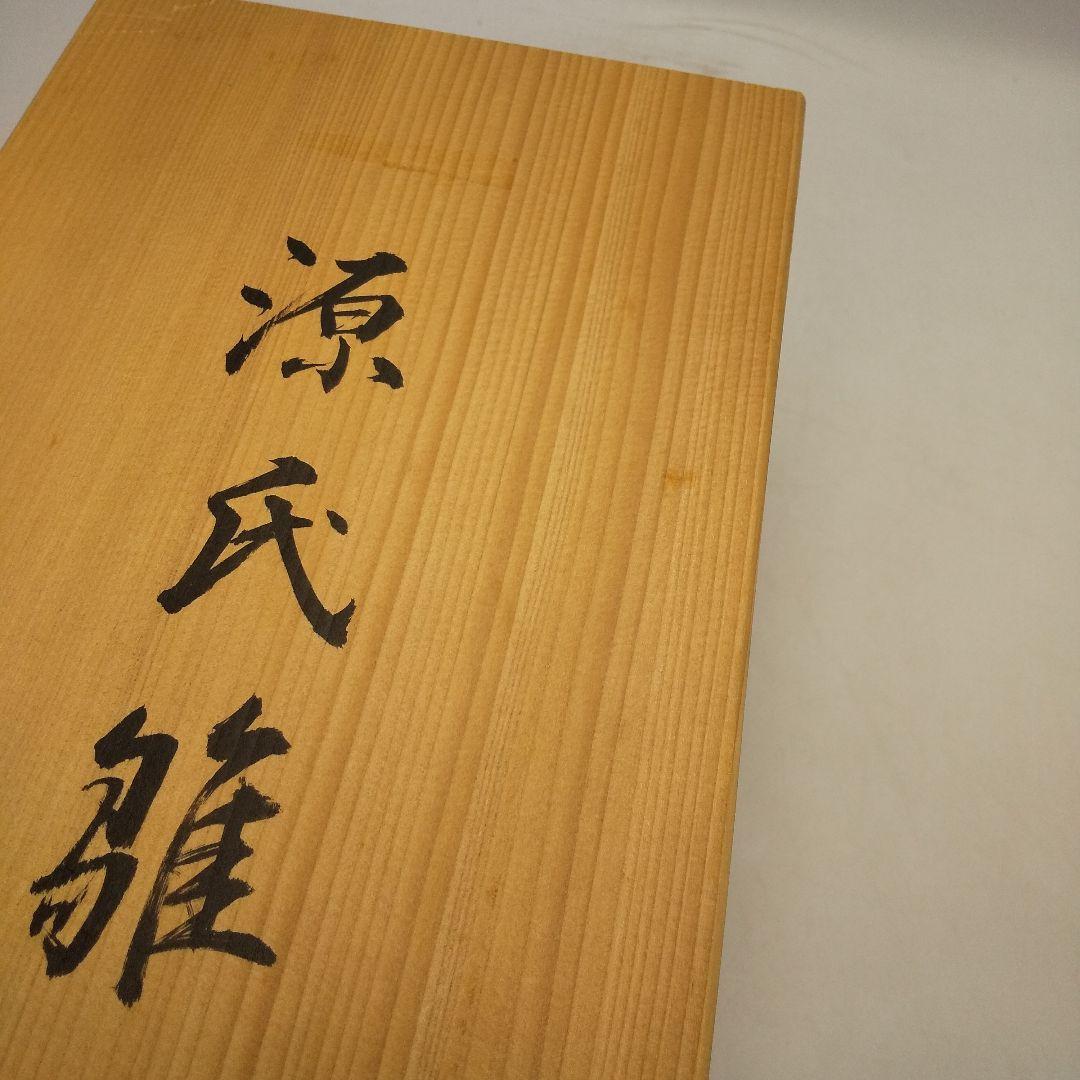 源氏雛